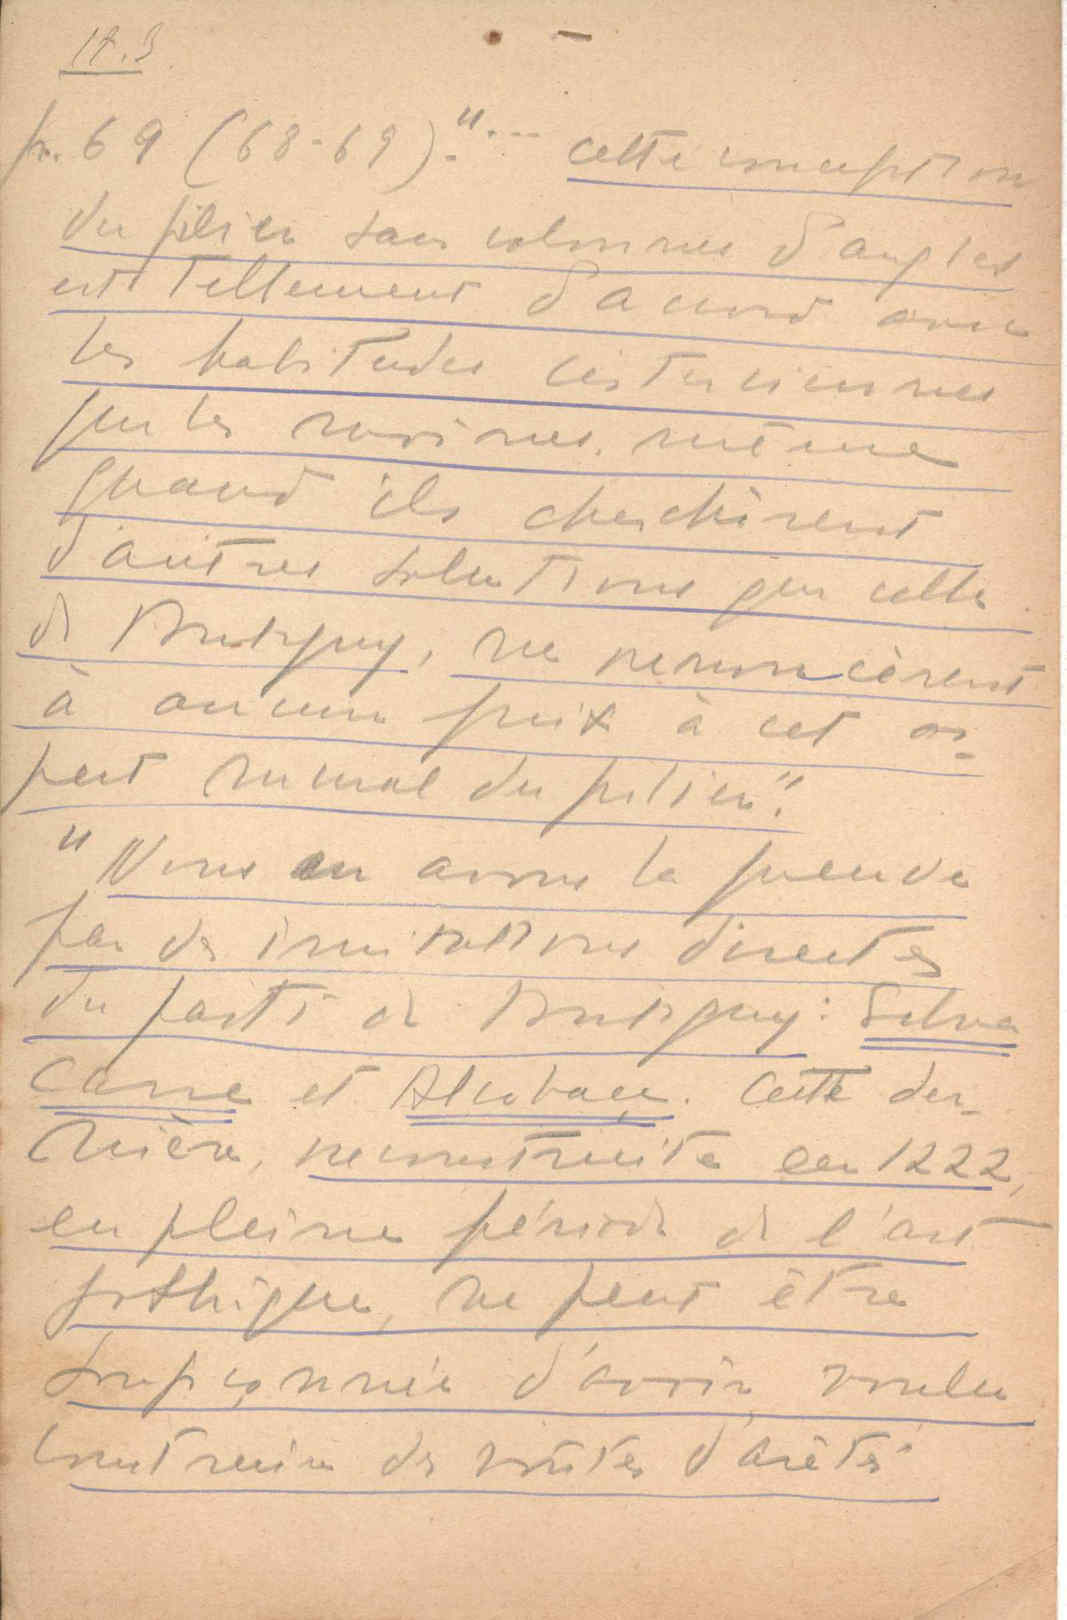 p. 69 (68-69). "... cette conception
du pilier sans colonnes d'angles
est tellement d'accord avec
les habitudes cisterciennes
que les moines, même
quand ils cherchèrent
d'autres solutions que celle
de Pontigny, ne renoncèrent
à aucun prix à cet as-
pect normal du pilier".
"Nous en avons la preuve
par des imitations directes
du parti de Pontigny: Silva
canne et Alcobaça. Cette der-
nière, reconstruite en 1222,
en pleine période de l'art
gothique, ne peut être
soupçonnée d'avoir voulu
construire des voûtes d'arêtes